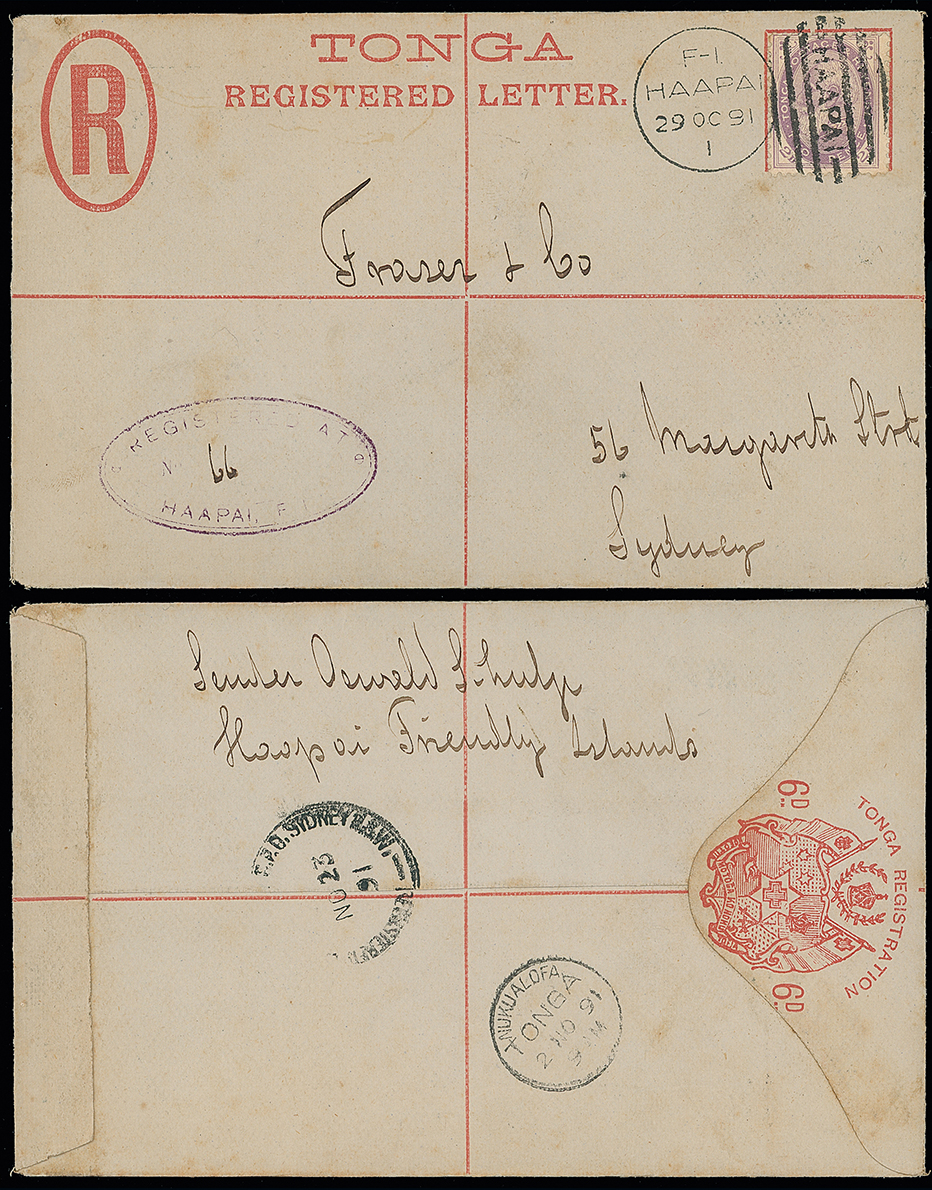 R
TONGA
REGISTERED LETTER.
F-1.
HAAPAI
29 OC 91
1
HAAPAI
Fraser & Co
REGISTERED AT
No 66
HAAPAI, F.I.
56 Margareth Strt
Sydney
Sender Oswald
Haapai Friendly Islands
G.P.O. SYDNEY N.S.W.
NO 23
91
REGISTERED
NUKUALOFA
TONGA
2 NO 91
9 AM
6D
TONGA REGISTRATION
6D